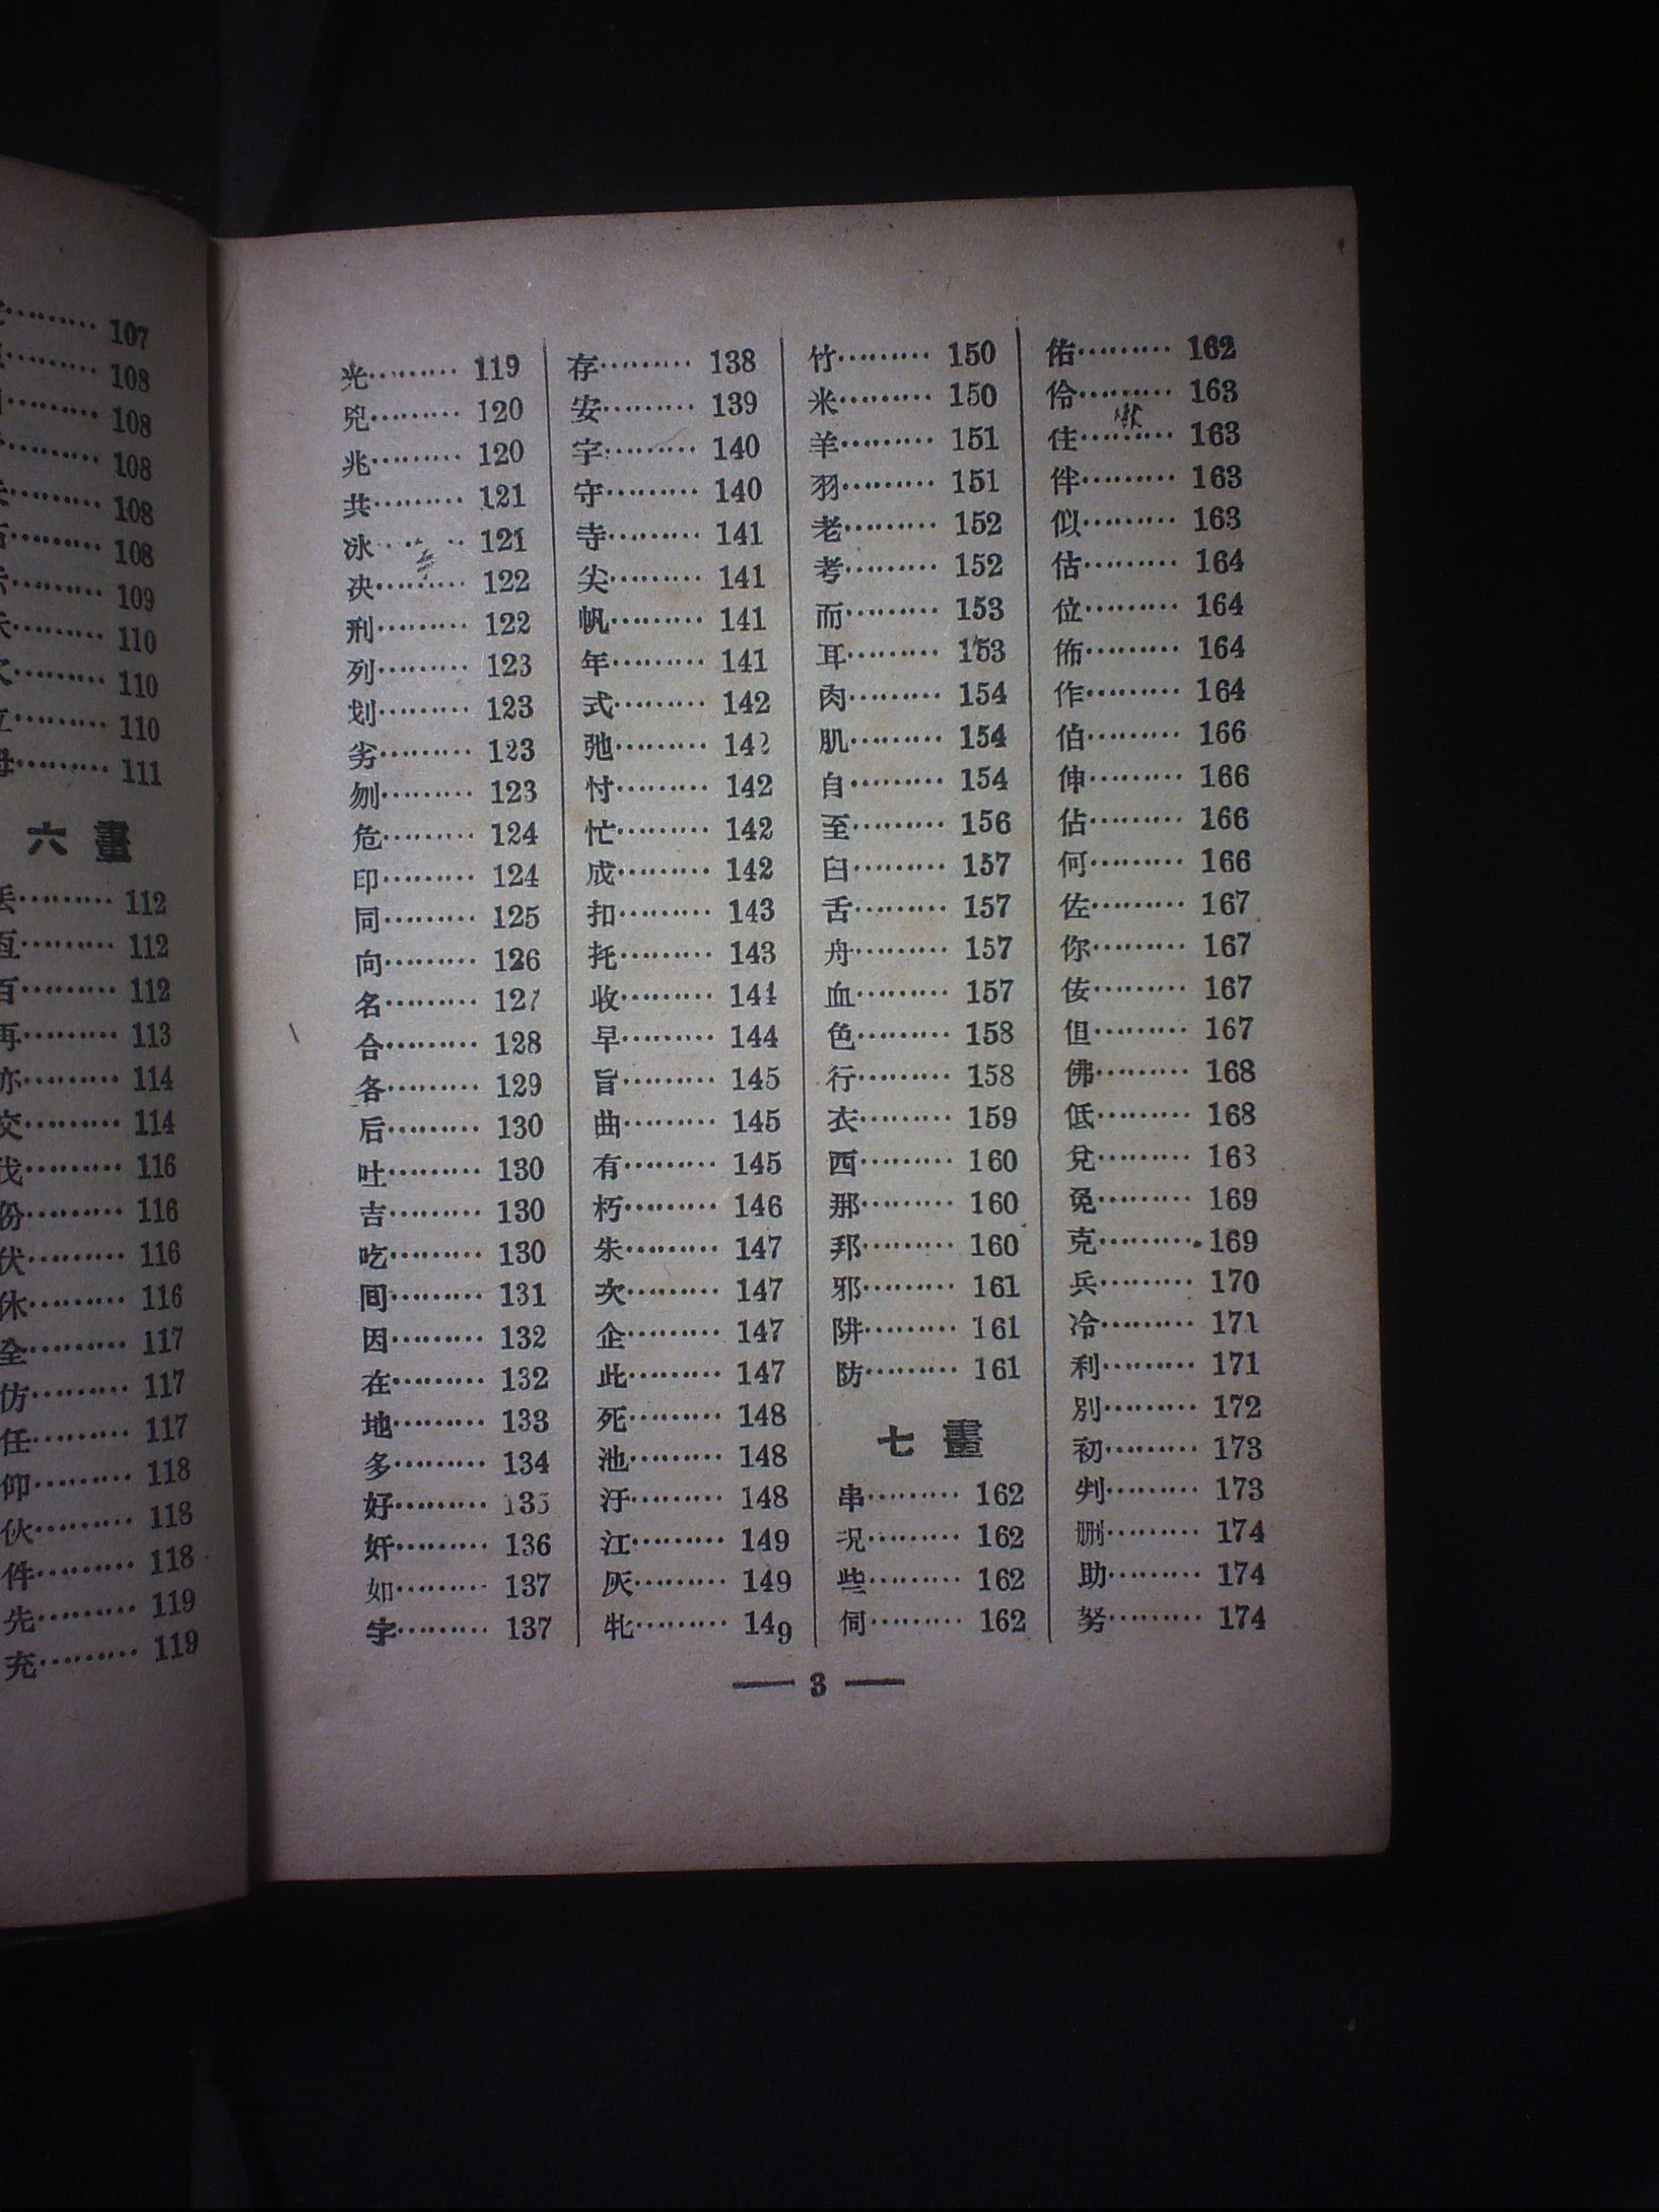 107
108
108
108
108
108
109
110
110
110
111
六畫
112
112
百……… 112
再……… 113
亦……… 114
交……… 114
伐……… 116
份……… 116
伏……… 116
休……… 116
全……… 117
仿……… 117
任……… 117
仰……… 118
伙……… 118
件……… 118
先……… 119
充……… 119
光……… 119
兇……… 120
兆……… 120
共……… 121
冰……… 121
决……… 122
刑……… 122
列……… 123
划……… 123
劣……… 123
刎……… 123
危……… 124
印……… 124
同……… 125
向……… 126
名……… 127
合……… 128
各……… 129
后……… 130
吐……… 130
吉……… 130
吃……… 130
回……… 131
因……… 132
在……… 132
地……… 133
多……… 134
好……… 135
奸……… 136
如……… 137
字……… 137
存……… 138
安……… 139
宇……… 140
守……… 140
寺……… 141
尖……… 141
帆……… 141
年……… 141
式……… 142
弛……… 142
忖……… 142
忙……… 142
成……… 142
扣……… 143
托……… 143
收……… 144
早……… 144
旨……… 145
曲……… 145
有……… 145
朽……… 146
朱……… 147
次……… 147
企……… 147
此……… 147
死……… 148
池……… 148
汙……… 148
江……… 149
灰……… 149
牝……… 149
竹……… 150
米……… 150
羊……… 151
羽……… 151
老……… 152
考……… 152
而……… 153
耳……… 153
肉……… 154
肌……… 154
自……… 154
至……… 156
臼……… 157
舌……… 157
舟……… 157
血……… 157
色……… 158
行……… 158
衣……… 159
西……… 160
那……… 160
邦……… 160
邪……… 161
阱……… 161
防……… 161
七畫
串……… 162
况……… 162
些……… 162
伺……… 162
佑……… 162
伶……… 163
住……… 163
伴……… 163
似……… 163
估……… 164
位……… 164
佈……… 164
作……… 164
伯……… 166
伸……… 166
佔……… 166
何……… 166
佐……… 167
你……… 167
佞……… 167
但……… 167
佛……… 168
低……… 168
兌……… 168
免……… 169
克……… 169
兵……… 170
冷……… 171
利……… 171
別……… 172
初……… 173
判……… 173
刪……… 174
助……… 174
努……… 174
— 3 —